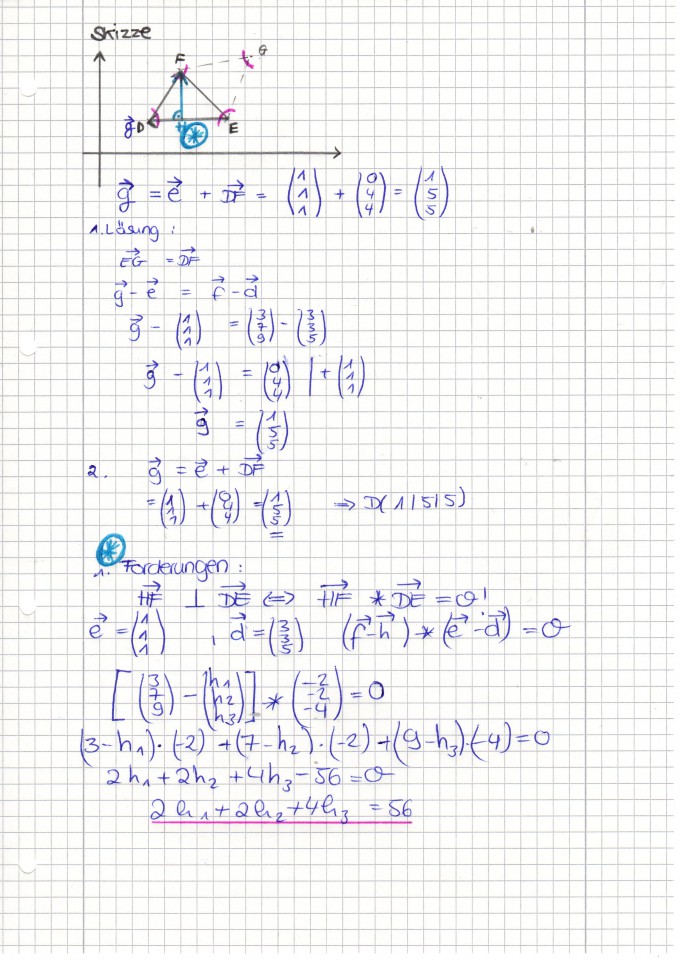 Skizze
F
G
g⃗ D
H
E
g⃗ = e⃗ + DF⃗ = (1 1 1) + (0 4 4) = (1 5 5)
1. Lösung :
EG⃗ = DF⃗
g⃗ - e⃗ = f⃗ - d⃗
g⃗ - (1 1 1) = (3 7 9) - (3 3 5)
g⃗ - (1 1 1) = (0 4 4) | + (1 1 1)
g⃗ = (1 5 5)
2. g⃗ = e⃗ + DF⃗
= (1 1 1) + (0 4 4) = (1 5 5) ⇒ D(1|5|5)
*
1. Forderungen :
HF⃗ ⊥ DE⃗ ⇔ HF⃗ * DE⃗ = 0!
e⃗ = (1 1 1) , d⃗ = (3 3 5) (f⃗ - h⃗) * (e⃗ - d⃗) = 0
[(3 7 9) - (h₁ h₂ h₃)] * (-2 -2 -4) = 0
(3-h₁)·(-2) + (7-h₂)·(-2) + (9-h₃)·(-4) = 0
2h₁ + 2h₂ + 4h₃ - 56 = 0
2h₁ + 2h₂ + 4h₃ = 56